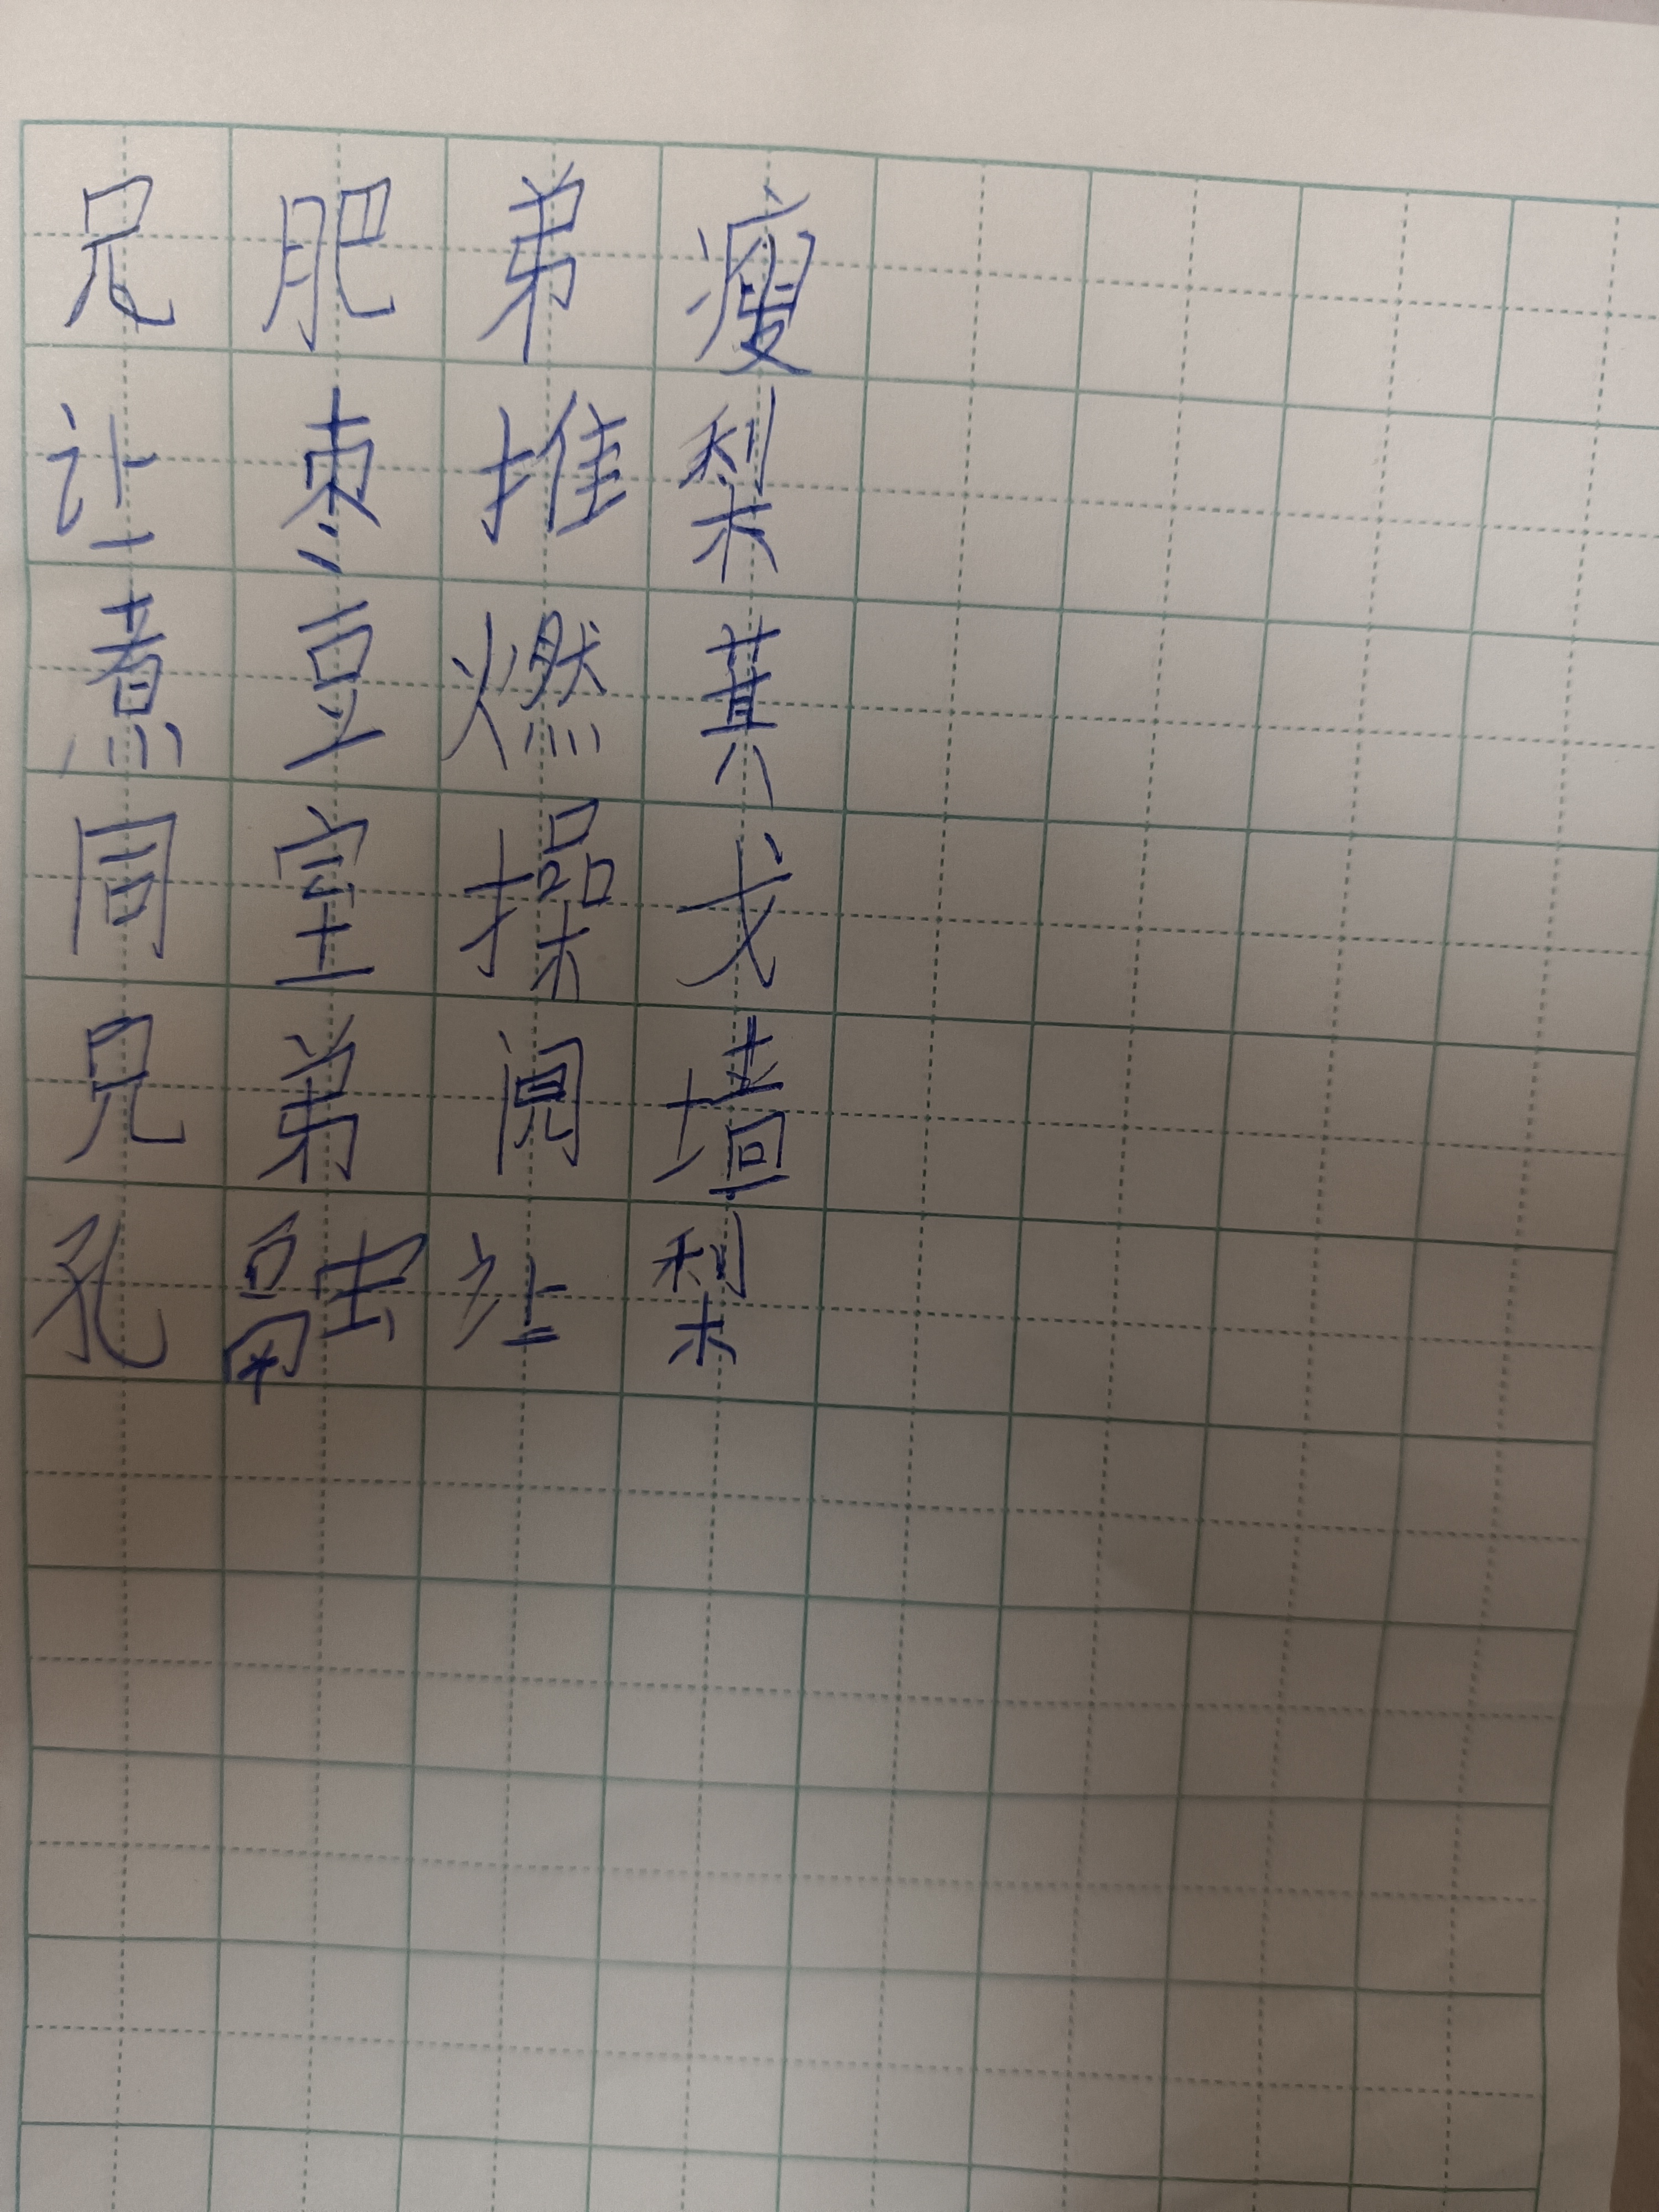 兄肥弟瘦
让枣推梨
煮豆燃萁
同室操戈
兄弟阋墙
孔融让梨